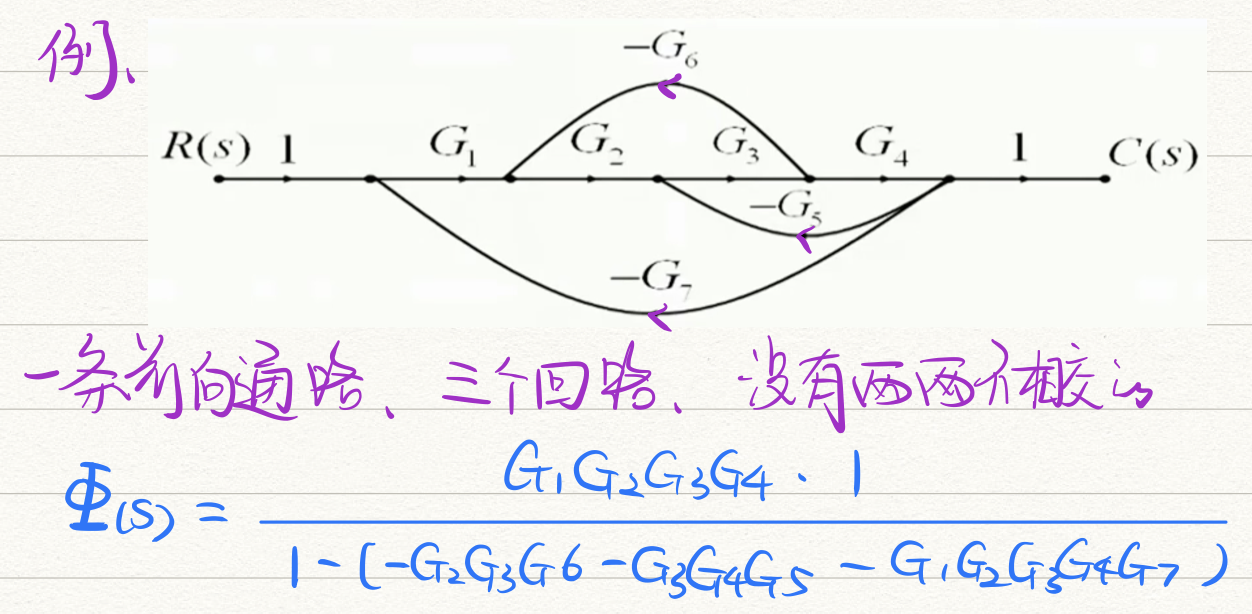 例、
−G₆
R(s) 1 G₁ G₂ G₃ G₄ 1 C(s)
−G₅
−G₇
一条前向通路、三个回路、没有两两不相交的
Φ(s) = G₁G₂G₃G₄ · 1
1 - (-G₂G₃G6 - G₃G₄G₅ - G₁G₂G₃G₄G₇)